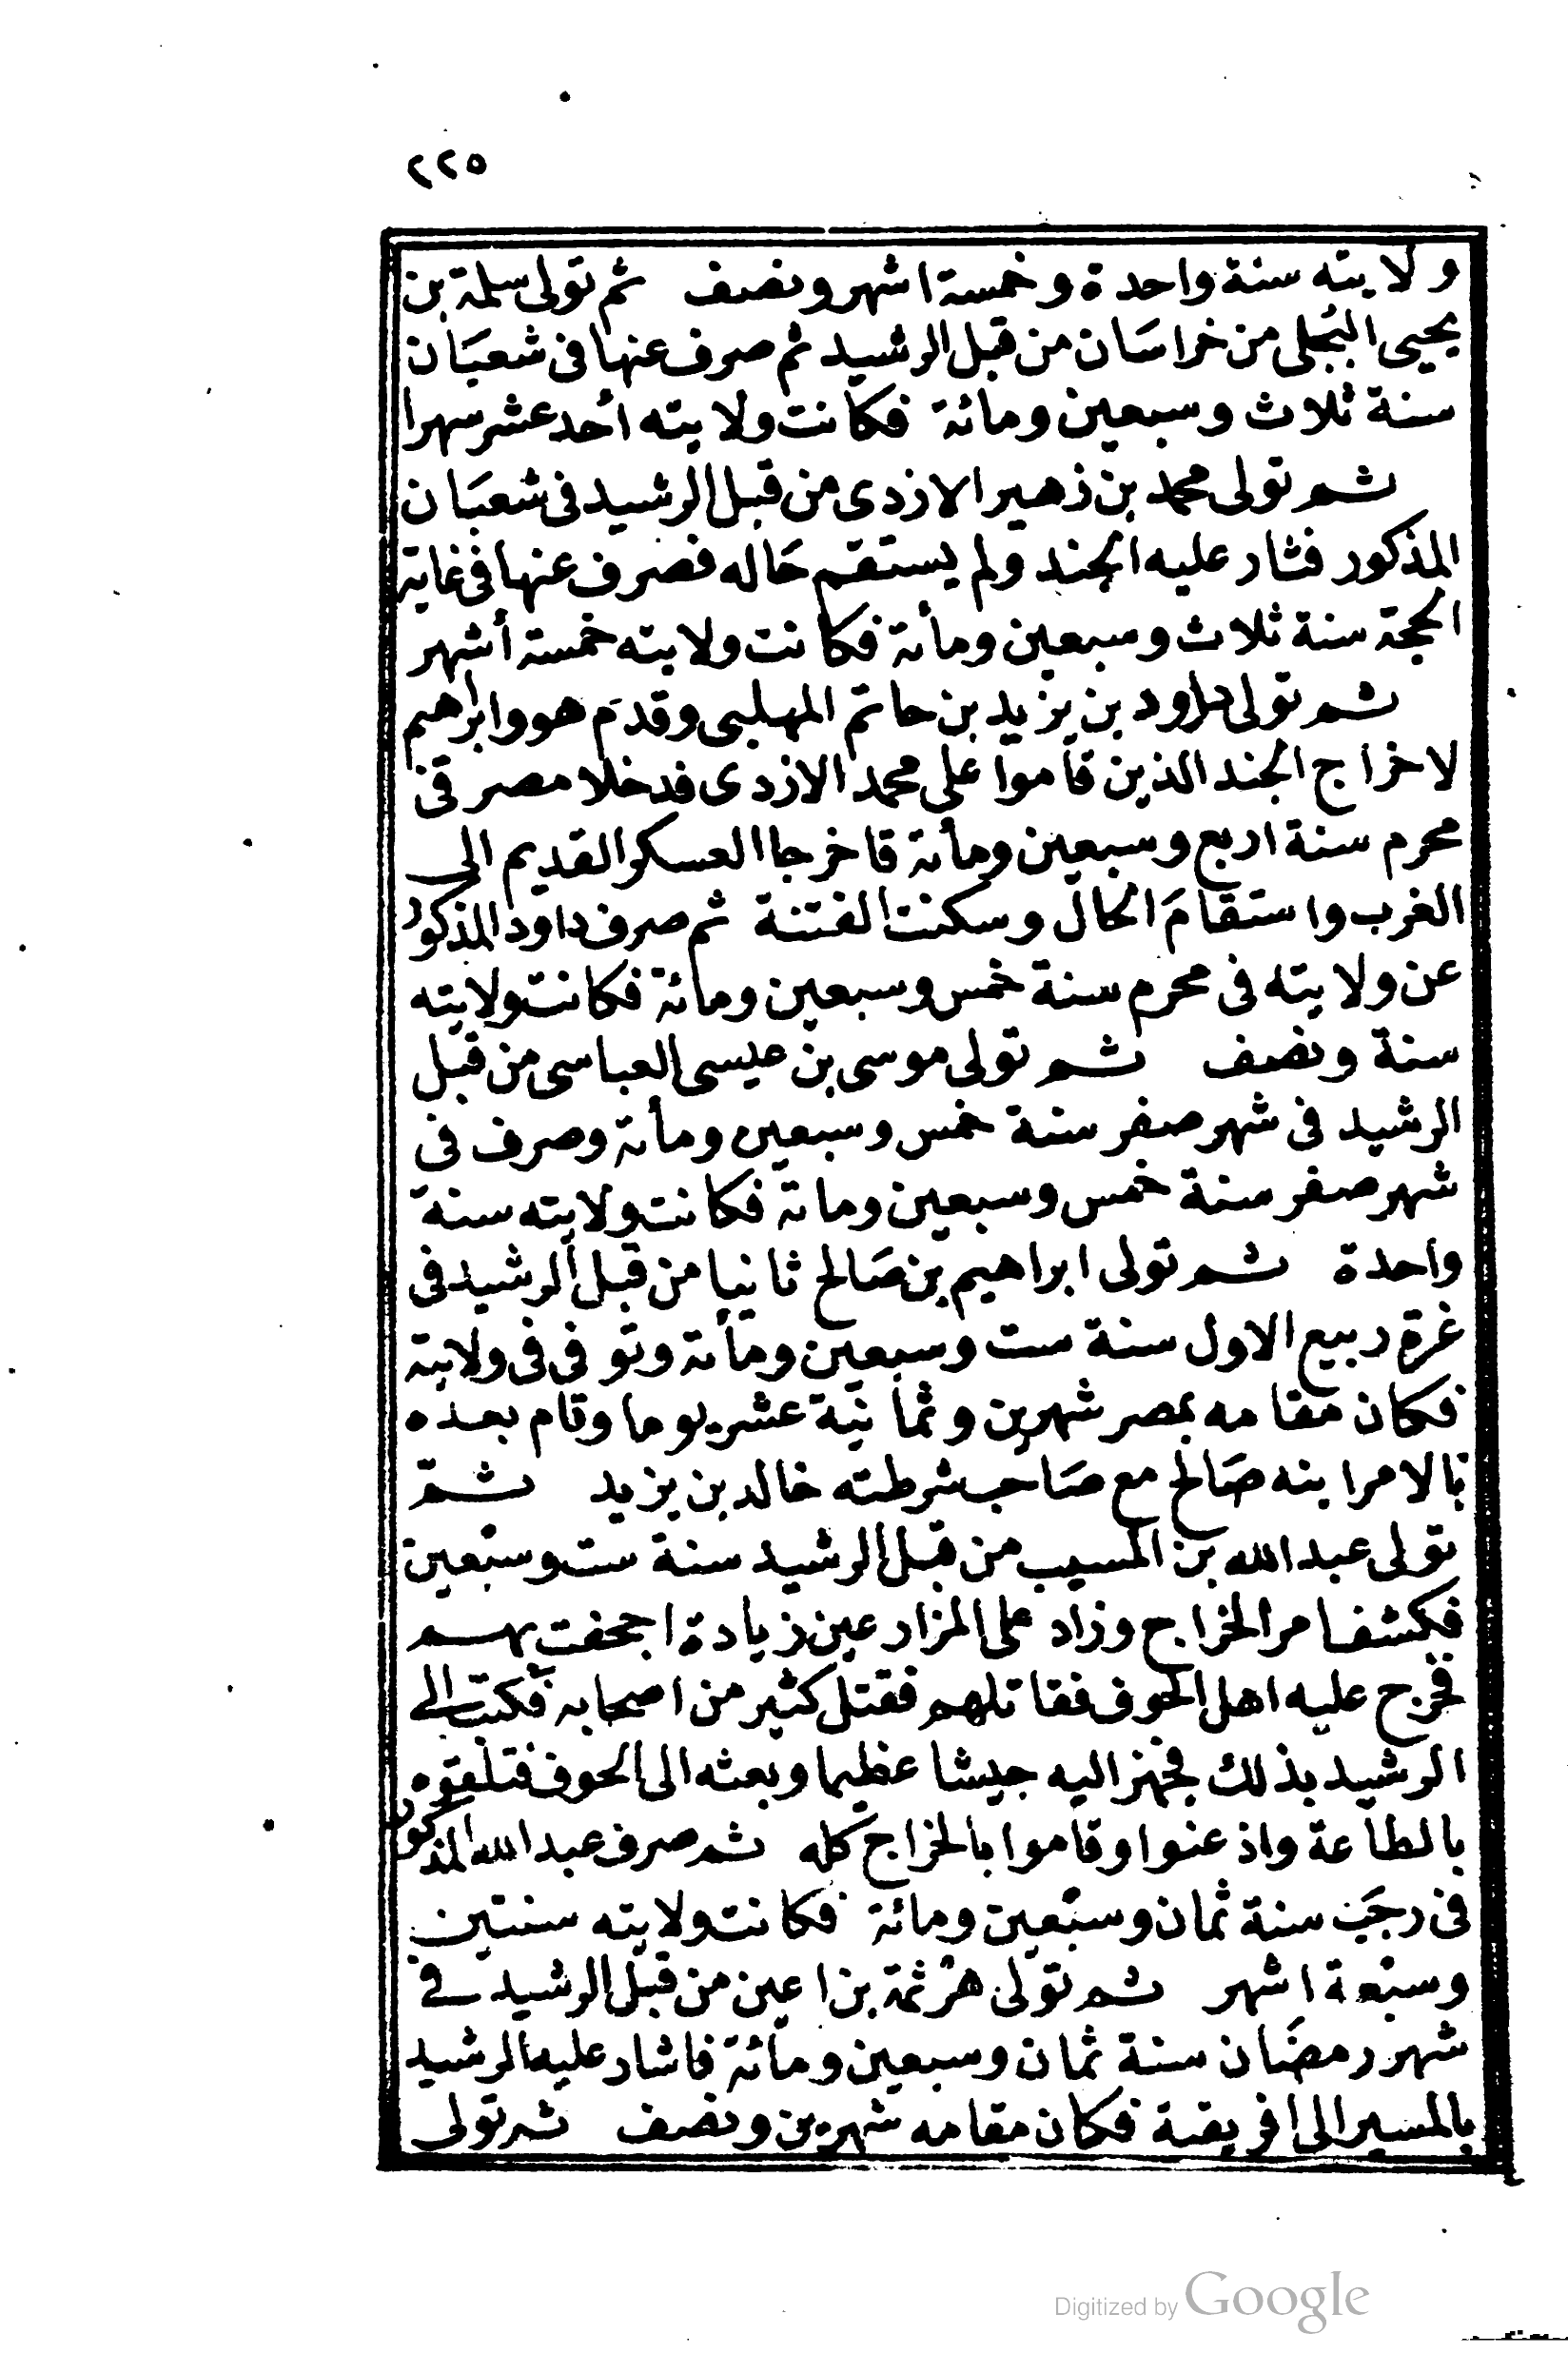 ٢٢٥
ولايته سنة واحدة وخمسة اشهر ونصف ثم تولى سلمة بن
يحيى البجلى من خراسان من قبل الرشيد ثم صرف عنها فى شعبان
سنة ثلاث وسبعين ومائة فكانت ولايته احد عشر سهرا
ثم تولى محمد بن زهير الازدى من قبل الرشيد فى شعبان
المذكور فثار عليه الجند ولم يستقم حاله فصرف عنها فى غاية
الحجة سنة ثلاث وسبعين ومأة فكانت ولايته خمسة أشهر
ثم تولى داود بن يزيد بن حاتم المهلبى وقدم هو وابراهيم
لاخراج الجند الذين قاموا على محمد الازدى فدخلا مصر فى
محرم سنة اربع وسبعين ومأة فاخرجا العسكر القديم الى
الغرب واستقام الحال وسكنت الفتنة ثم صرف داود المذكور
عن ولايته فى محرم سنة خمس وسبعين ومائة فكانت ولايته
سنة ونصف ثم تولى موسى بن عيسى العباسى من قبل
الرشيد فى شهر صفر سنة خمس وسبعين ومأة وصرف فى
شهر صفر سنة خمس وسبعين وماة فكانت ولايته سنة
واحدة ثم تولى ابراهيم بن صالح ثانيا من قبل الرشيد فى
غرة ربيع الاول سنة ست وسبعين ومأة وتوفى فى ولايته
فكان مقامه بمصر شهرين وثمانية عشر يوما وقام بعده
بالامر ابنه صالح مع صاحب شرطته خالد بن يزيد ثم
تولى عبد الله بن المسيب من قبل الرشيد سنة ست وسبعين
فكشف امر الخراج وزاد على المزارعين زيادة اجحفت بهم
فخرج عليه اهل الحوف فقاتلهم فقتل كثير من اصحابه فكتب الى
الرشيد بذلك فجهز اليه جيشا عظيما وبعثه الى الحوف فتلقوه
بالطاعة واذعنوا وقاموا بالخراج كله ثم صرف عبد الله المذكور
فى رجب سنة ثمان وسبعين ومائة فكانت ولايته سنتين
وسبعة اشهر ثم تولى هرثمة بن اعين من قبل الرشيد فى
شهر رمضان سنة ثمان وسبعين ومائة فاشار عليه الرشيد
بالمسير الى افريقية فكان مقامه شهرين ونصف ثم تولى
Digitized by Google